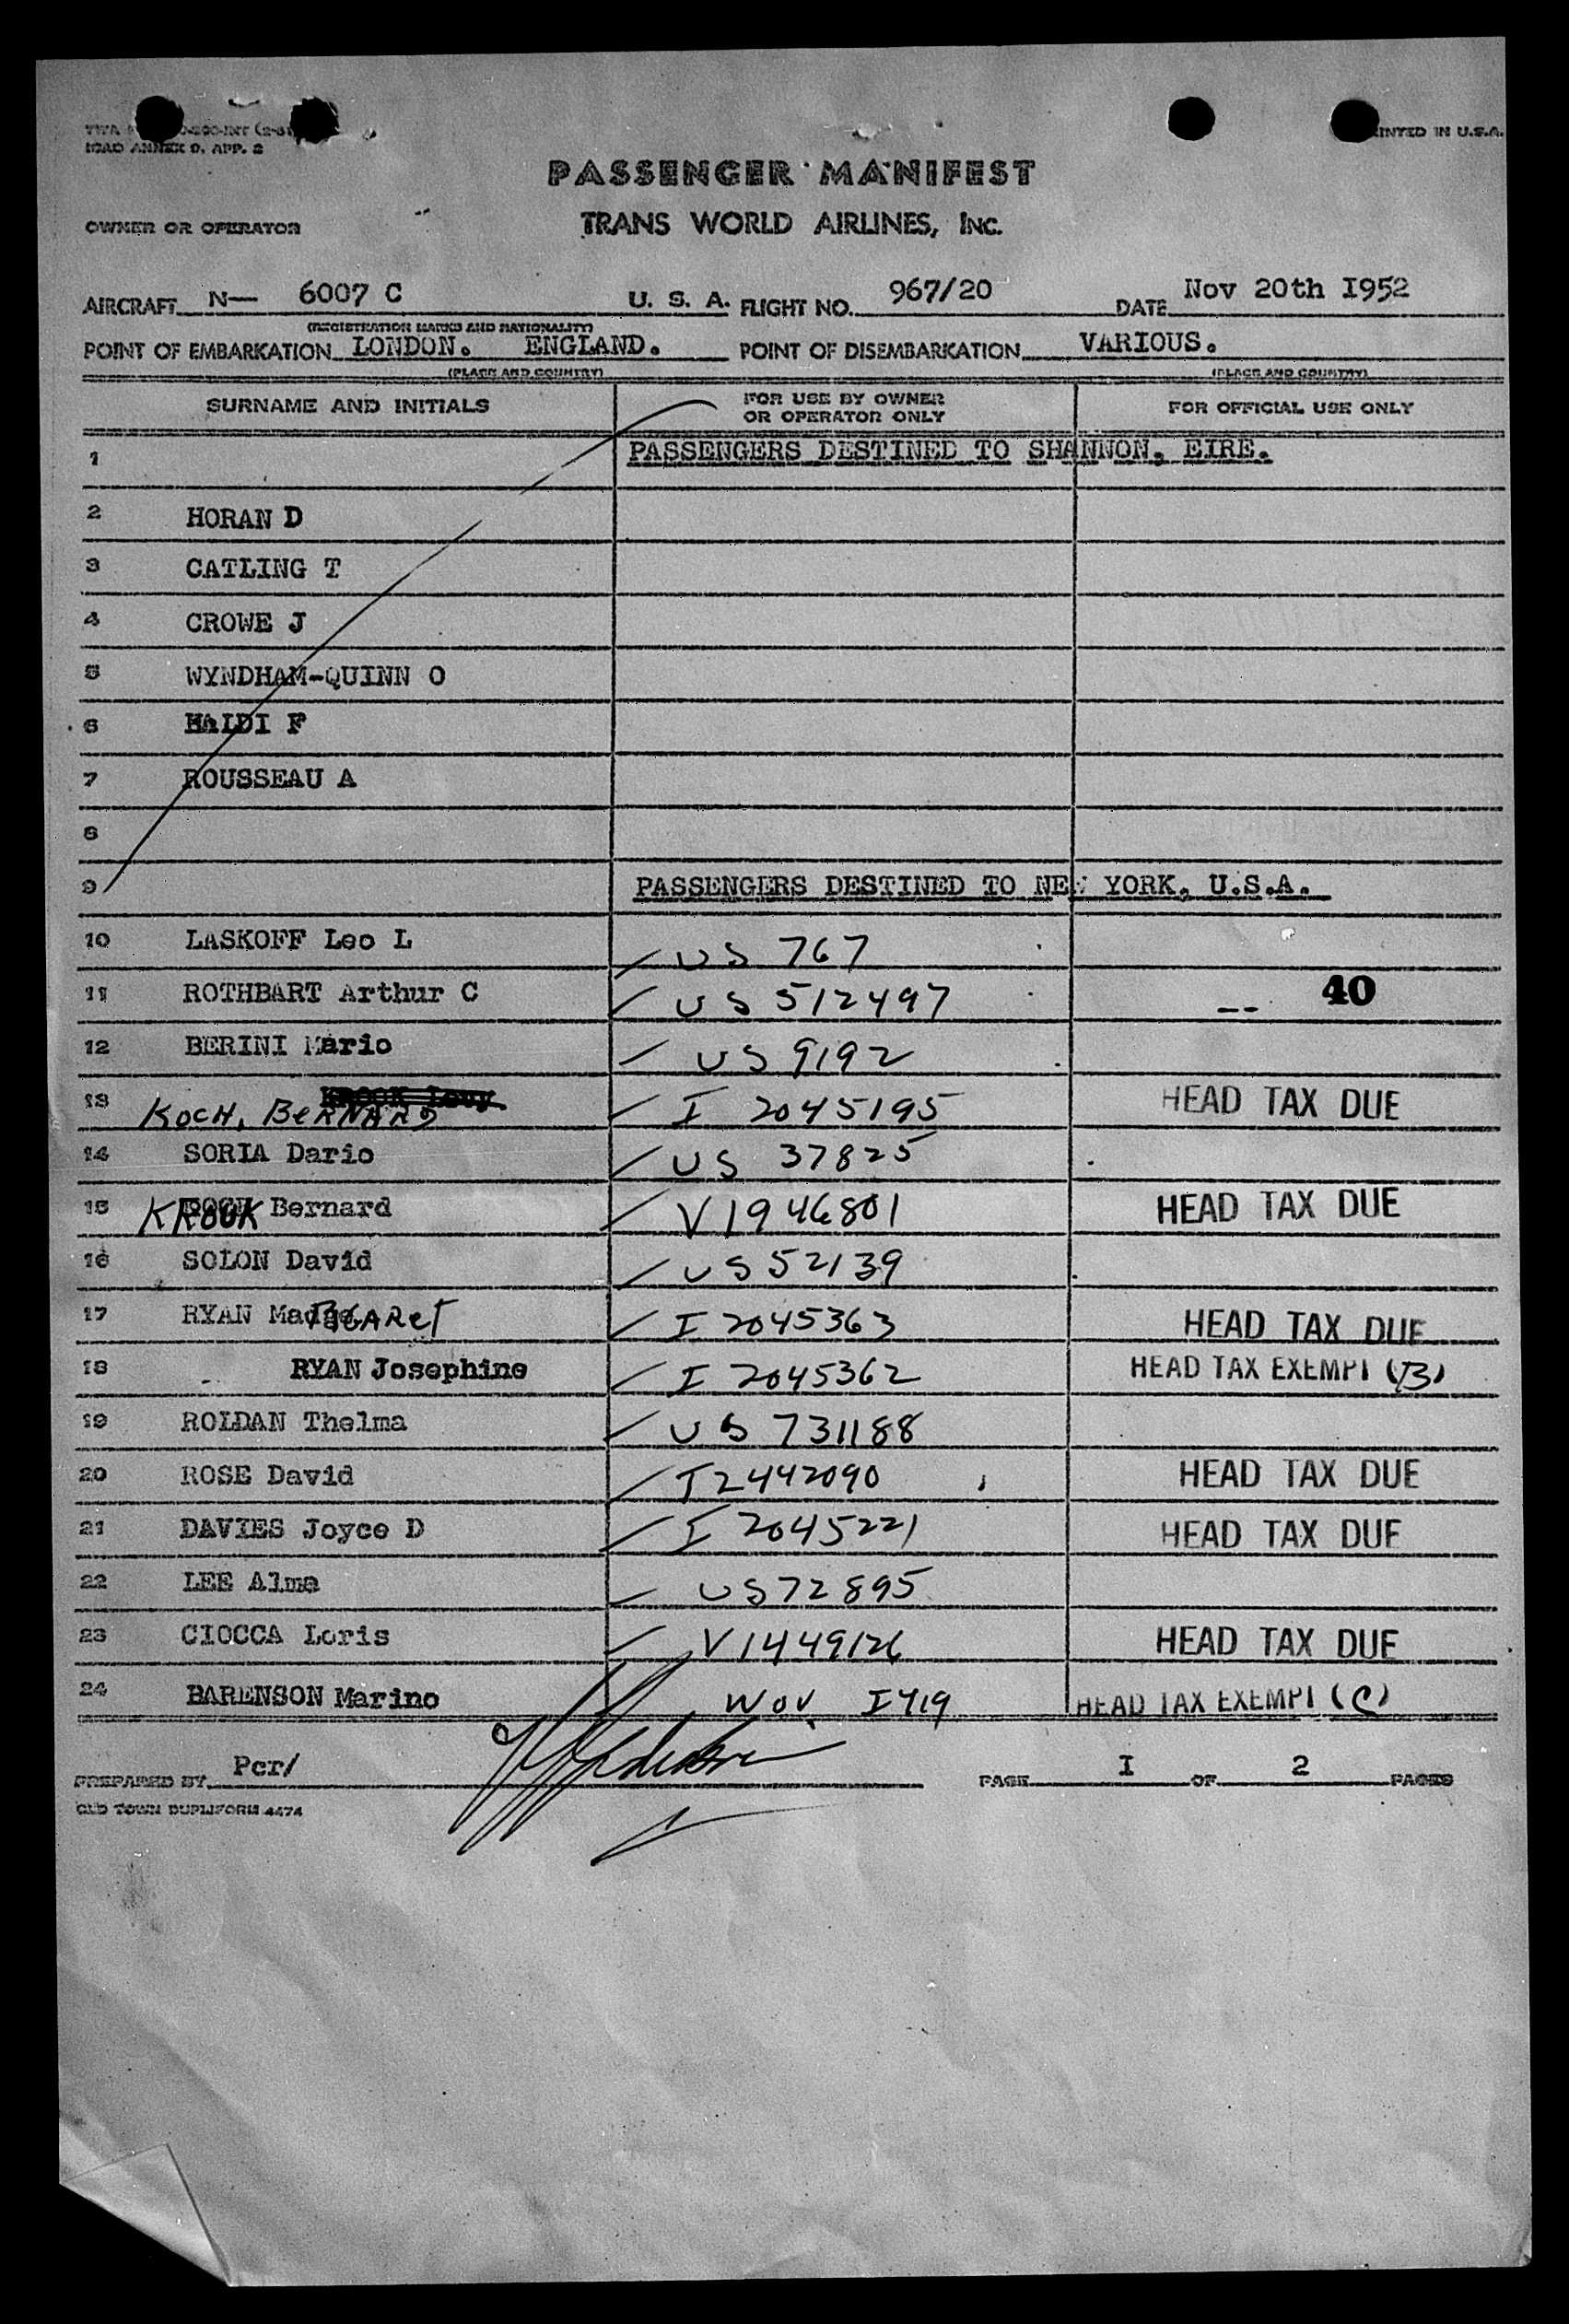 ICAO ANNEX 9, APP. 2
PRINTED IN U.S.A.
PASSENGER MANIFEST
OWNER OR OPERATOR TRANS WORLD AIRLINES, INC.
AIRCRAFT N— 6007 C U. S. A. FLIGHT NO. 967/20 DATE Nov 20th I952
(REGISTRATION MARKS AND NATIONALITY)
POINT OF EMBARKATION LONDON. ENGLAND. POINT OF DISEMBARKATION VARIOUS.
(PLACE AND COUNTRY) (PLACE AND COUNTRY)
SURNAME AND INITIALS FOR USE BY OWNER OR OPERATOR ONLY FOR OFFICIAL USE ONLY
1 PASSENGERS DESTINED TO SHANNON, EIRE.
2 HORAN D
3 CATLING T
4 CROWE J
5 WYNDHAM-QUINN O
6 HALDI F
7 ROUSSEAU A
8
9 PASSENGERS DESTINED TO NEW YORK, U.S.A.
10 LASKOFF Leo L US 767
11 ROTHBART Arthur C US 512497 -- 40
12 BERINI Mario US 9192
13 KROOK KOCH, BERNARD I 2045195 HEAD TAX DUE
14 SORIA Dario US 37825
15 KROOK Bernard V1946801 HEAD TAX DUE
16 SOLON David US52139
17 RYAN MaRGAReT I 2045363 HEAD TAX DUE
18 RYAN Josephine I 2045362 HEAD TAX EXEMPT (B)
19 ROLDAN Thelma US 731188
20 ROSE David I2442090 HEAD TAX DUE
21 DAVIES Joyce D I 2045221 HEAD TAX DUE
22 LEE Alma US72895
23 CIOCCA Loris V1449126 HEAD TAX DUE
24 BARENSON Marino WOV I419 HEAD TAX EXEMPT (C)
PREPARED BY Per/ PAGE I OF 2 PAGES
OLD TOWN DUPLIFORM 4474